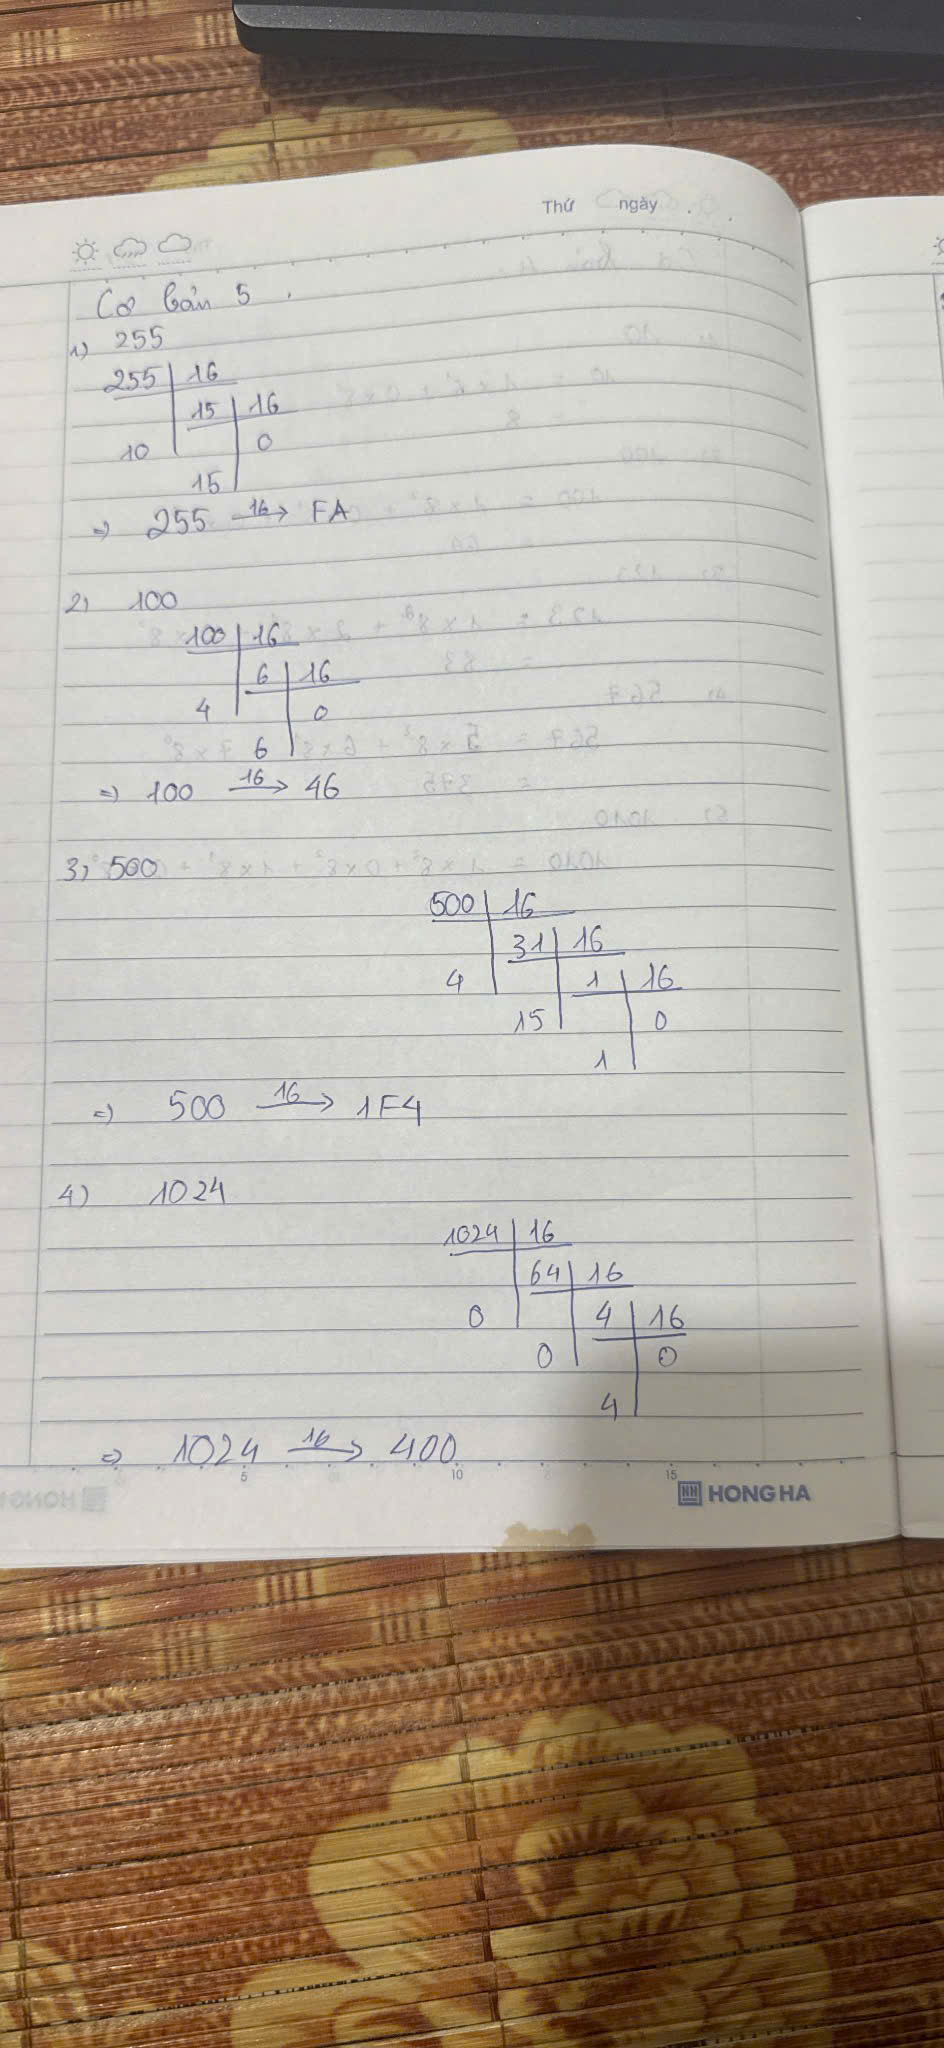 Thứ ngày
Cơ bản 5.
1) 255
255 16
15 16
10 0
15
=> 255 16→ FA
2) 100
100 16
6 16
4 0
6
=> 100 16→ 46
3) 500
500 16
31 16
4 1 16
15 0
1
=> 500 16→ 1F4
4) 1024
1024 16
64 16
0 4 16
0 0
4
=> 1024 16→ 400
5 10 15
HONG HA